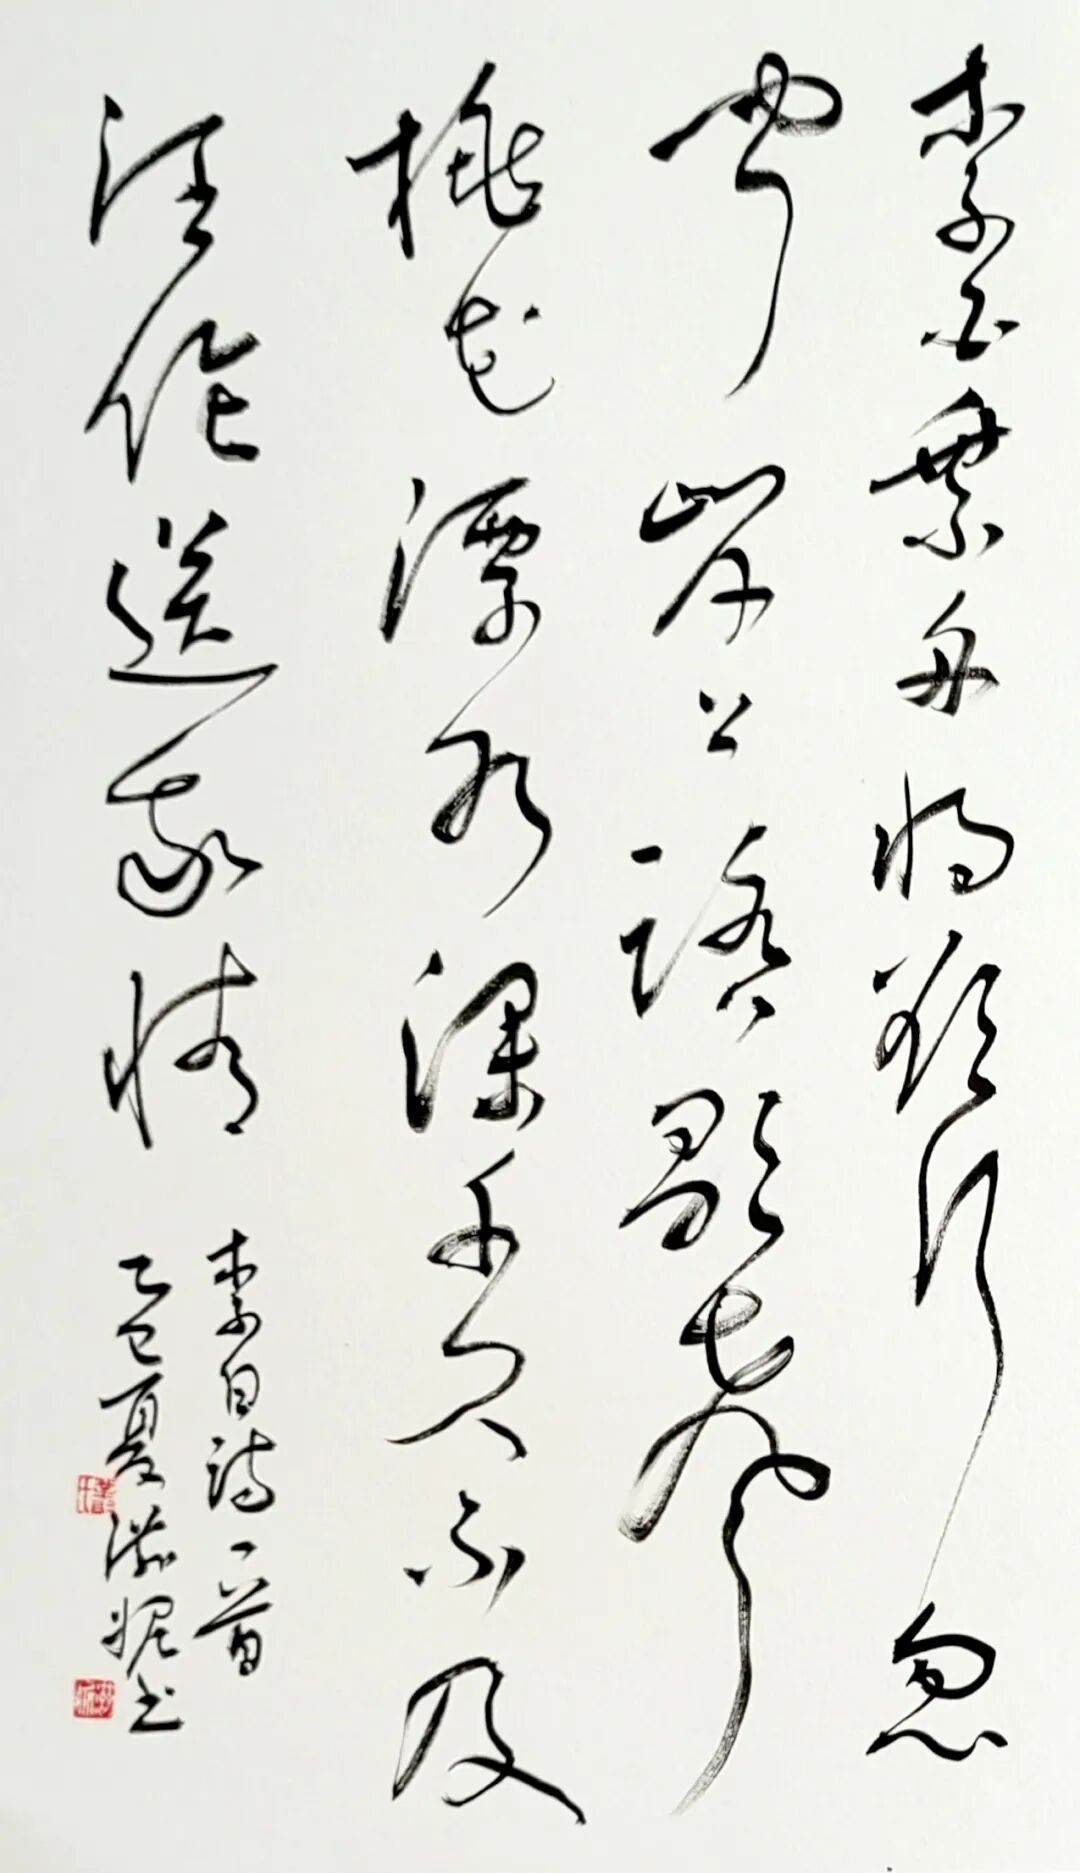 李白乘舟将欲行忽
闻岸上踏歌声
桃花潭水深千尺不及
汪伦送我情
李白诗一首
乙巳夏书